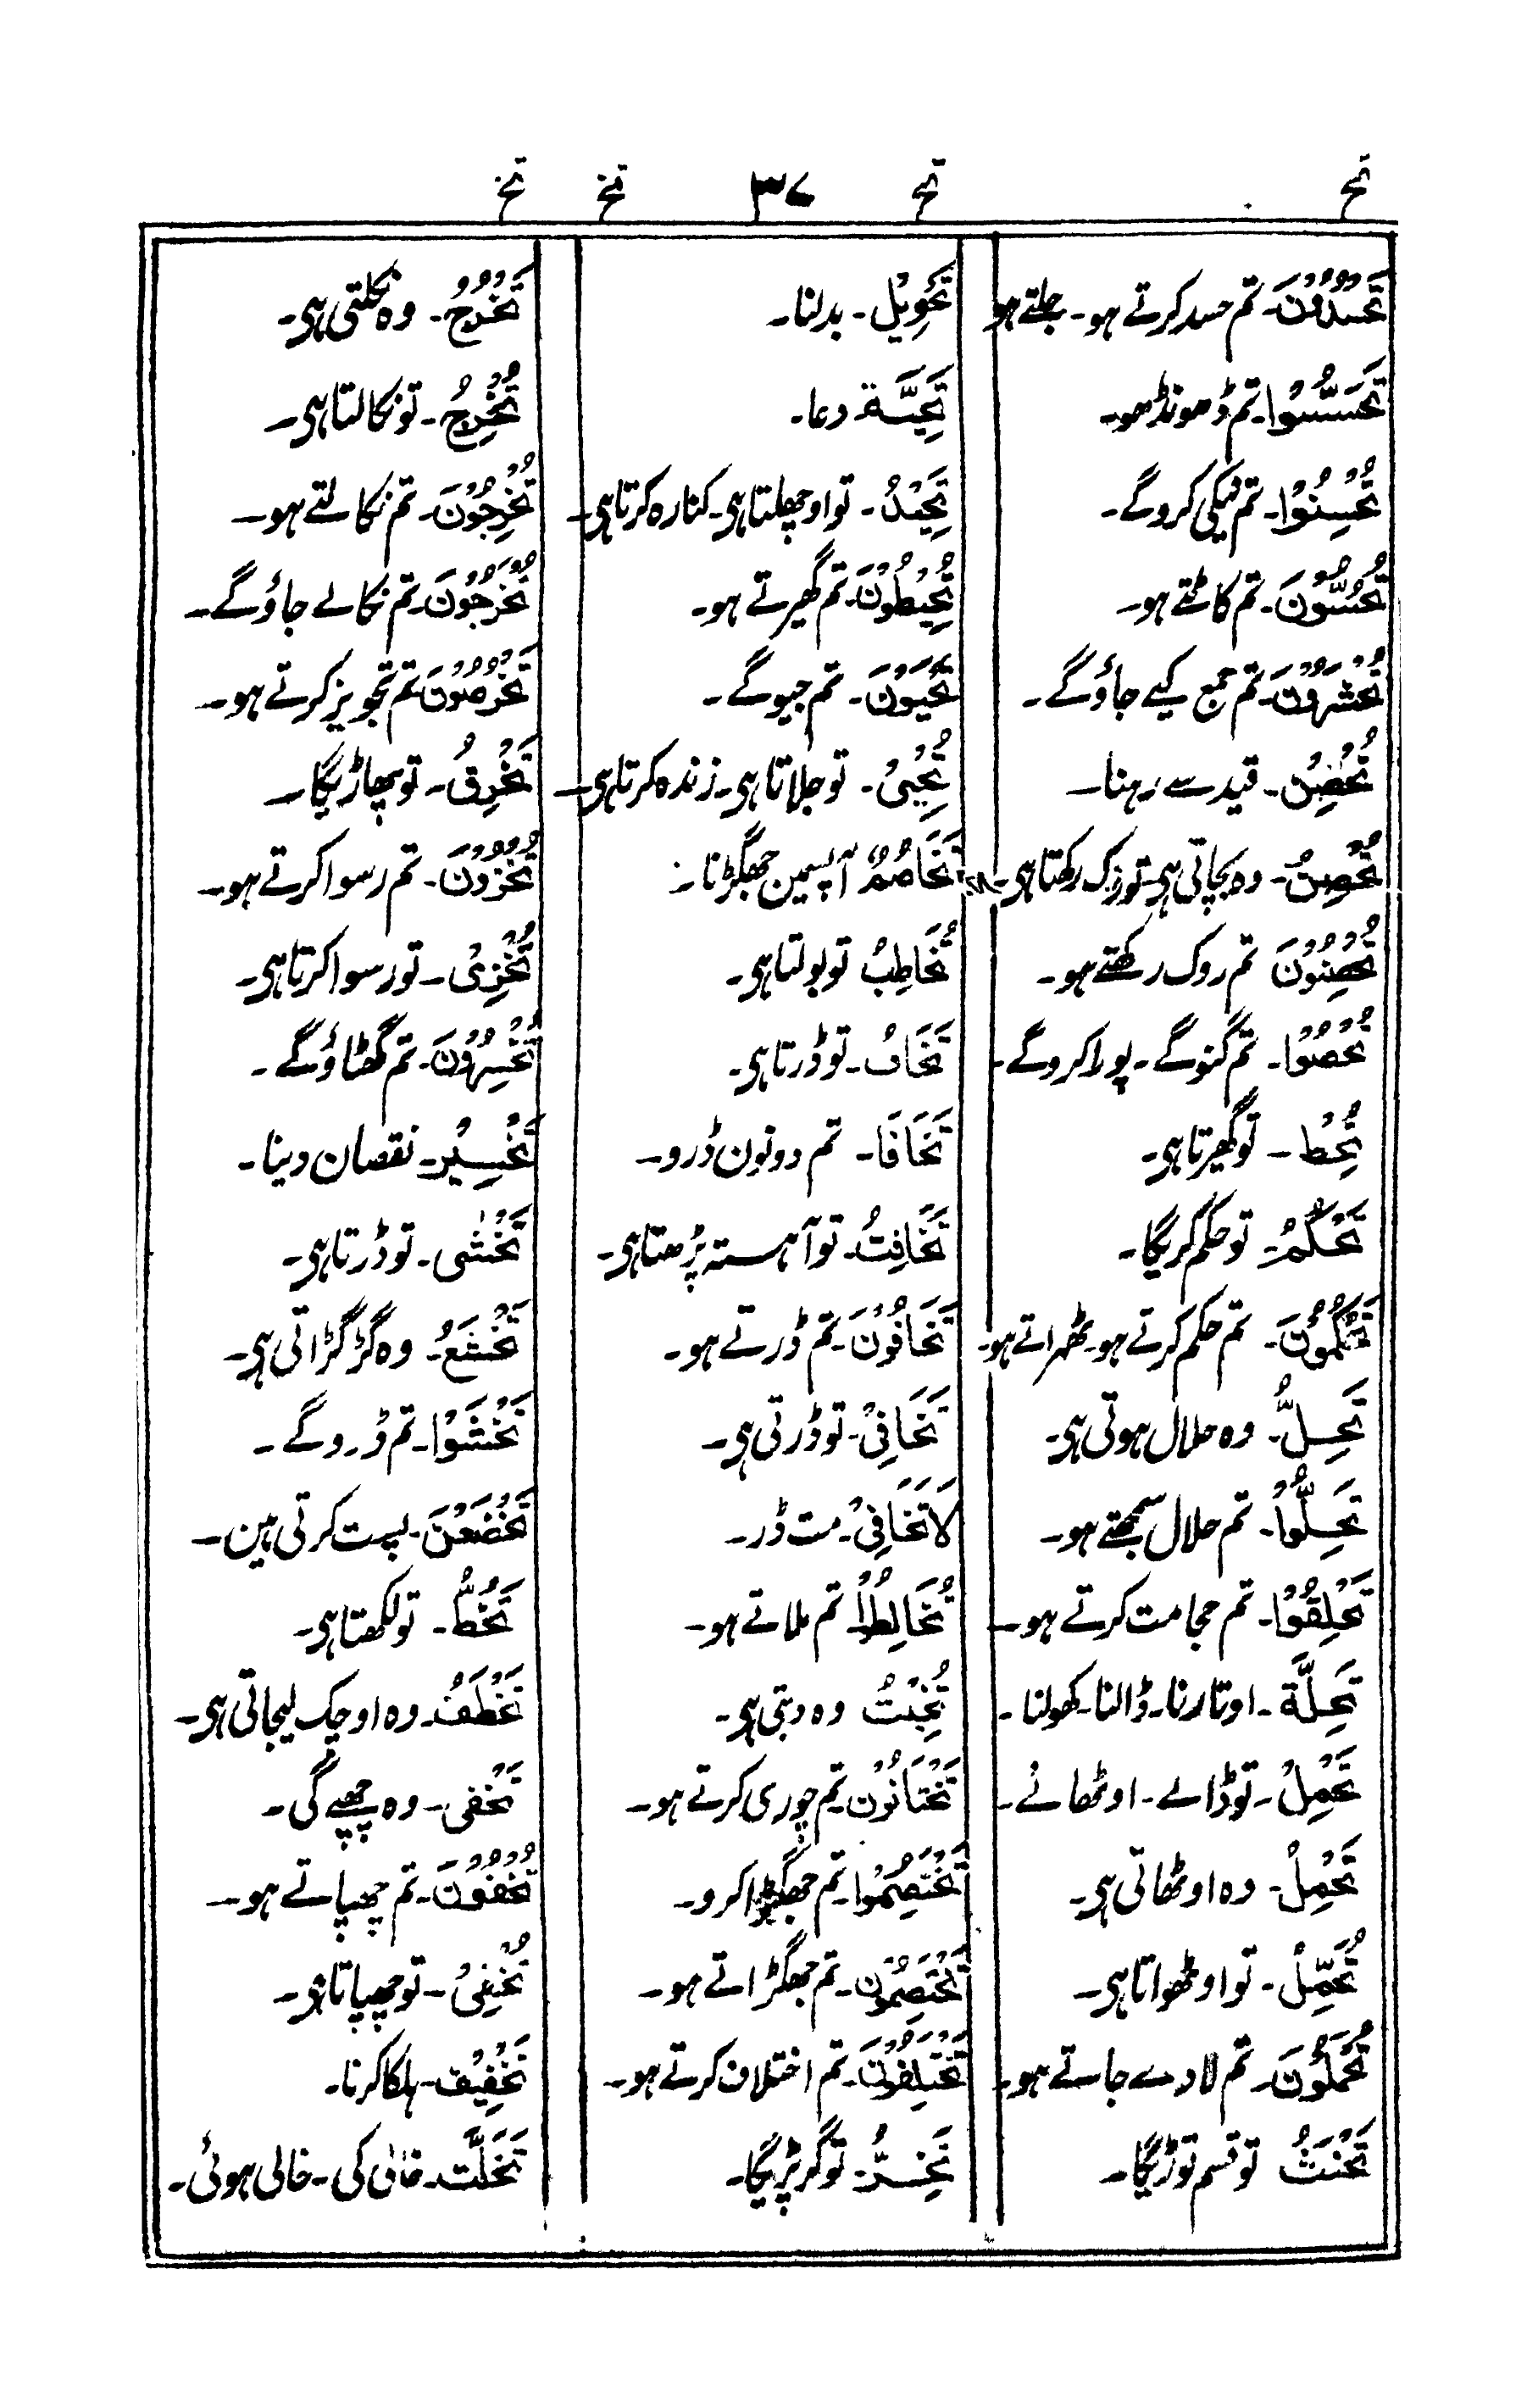 تح تح ٣٧ تخ تخ
تَحْسُدُوْنَ۔ تم حسد کرتے ہو۔ جلتے ہو
تَحَسَّسُوْا۔ تم ڈھونڈھو۔
تُحْسِنُوْا۔ تم نیکی کروگے۔
تَحُسُّوْنَ۔ تم کاٹتے ہو۔
تُحْشَرُوْنَ۔ تم جمع کیے جاؤگے۔
تَحَصُّن۔ قید سے رہنا۔
تُحْصِنُ۔ وہ بچاتی ہی۔ تو روک رکھتا ہی۔
تُحْصِنُوْنَ تم روک رکھتے ہو۔
تُحْصُوْا۔ تم گنوگے۔ پورا کروگے۔
تُحِطْ۔ تو گھیرتا ہی۔
تَحْكُمُ۔ تو حکم کریگا۔
تَحْكُمُوْنَ۔ تم حکم کرتے ہو۔ ٹھہراتے ہو۔
تَحِلُّ۔ وہ حلال ہوتی ہی۔
تُحِلُّوْا۔ تم حلال سمجھتے ہو۔
تَحْلِقُوْا۔ تم حجامت کرتے ہو۔
تَحِلَّة۔ اوتارنا۔ ڈالنا۔ کھولنا۔
تَحْمِلْ۔ تو ڈالے۔ اوٹھائے۔
تَحْمِلُ۔ وہ اوٹھاتی ہی۔
تُحَمِّلْ۔ تو اوٹھواتا ہی۔
تُحْمَلُوْنَ۔ تم لادے جاتے ہو۔
تَحْنَثُ تو قسم توڑیگا۔
تَحْوِيْل۔ بدلنا۔
تَحِيَّة دعا۔
تَحِيْدُ۔ تو اوچھلتا ہی۔ کنارہ کرتا ہی۔
تُحِيْطُوْنَ۔ تم گھیرتے ہو۔
تَحْيَوْنَ۔ تم جیوگے۔
تُحْيِىْ۔ تو جلاتا ہی۔ زندہ کرتا ہی۔
تَخَاصُمٌ آپسمین جھگڑنا۔
تُخَاطِبْ تو بولتا ہی۔
تَخَافُ۔ تو ڈرتا ہی۔
تَخَافَا۔ تم دونون ڈرو۔
تُخَافِتْ۔ تو آہستہ پڑھتا ہی۔
تَخَافُوْنَ۔ تم ڈرتے ہو۔
تَخَافِىْ۔ تو ڈرتی ہی۔
لَا تَخَافِىْ۔ مت ڈر۔
تُخَالِطُوْا تم ملاتے ہو۔
تُخْبِتُ وہ دبتی ہی۔
تَخْتَانُوْن۔ تم چوری کرتے ہو۔
تَخْتَصِمُوْا۔ تم جھگڑا کرو۔
تَخْتَصِمُوْن۔ تم جھگڑاتے ہو۔
تَخْتَلِفُوْنَ۔ تم اختلاف کرتے ہو۔
تَخِرُّ۔ تو گر پڑیگا۔
تَخْرُجُ۔ وہ نکلتی ہی۔
تُخْرِجُ۔ تو نکالتا ہی۔
تُخْرِجُوْنَ۔ تم نکالتے ہو۔
تُخْرَجُوْنَ۔ تم نکالے جاؤگے۔
تَخْرُصُوْنَ تم تجویز کرتے ہو۔
تَخْرِقُ۔ تو پھاڑیگا۔
تُخْزُوْنَ۔ تم رسوا کرتے ہو۔
تُخْزِىْ۔ تو رسوا کرتا ہی۔
تُخْسِرُوْنَ۔ تم گھٹاؤگے۔
تَخْسِيْر۔ نقصان دینا۔
تَخْشٰى۔ تو ڈرتا ہی۔
تَخْشَعُ۔ وہ گڑگڑاتی ہی۔
تَخْشَوْا۔ تم ڈروگے۔
تَخْضَعْنَ۔ پست کرتی ہین۔
تَخُطُّ۔ تو لکھتا ہی۔
تَخْطَفُ۔ وہ اوچک لیجاتی ہی۔
تَخْفى۔ وہ چھپے گی۔
تُخْفُوْنَ۔ تم چھپاتے ہو۔
تُخْفِىْ۔ تو چھپاتا ہی۔
تَخْفِيْف۔ ہلکا کرنا۔
تَخَلَّت۔ خالی کی۔ خالی ہوئی۔